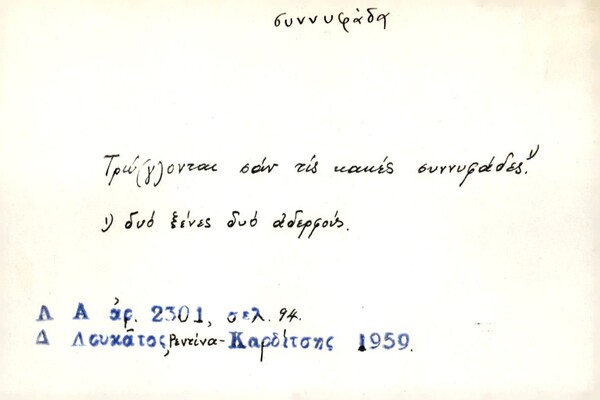 συννυφάδα
Τρώ(γ)ονται σάν τίς κακές συννυφάδες.¹⁾
1) δυό ξένες δυό ἀδερφούς.
Λ Α ἀρ. 2301, σελ. 94.
Δ Λουκᾶτος, Ρεντίνα-Καρδίτσης 1959.